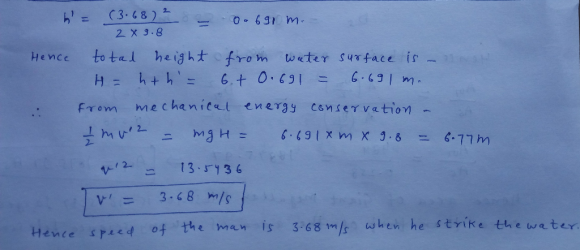 h' = (3.68)² / 2 x 9.8 = 0.691 m.
Hence total height from water surface is -
H = h + h' = 6 + 0.691 = 6.691 m.
∴ From mechanical energy conservation -
1/2 m v'² = mgH = 6.691 x m x 9.8 = 6.77m
v'² = 13.5436
v' = 3.68 m/s
Hence speed of the man is 3.68 m/s when he strike the water